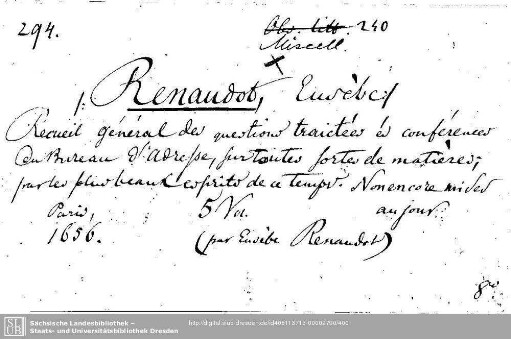 294.
Obs. litt. 240
Miscell.
/: Renaudot, Eusèbe :/
Recueil général des questions traictées és conférences
du Bureau d'Adresse, sur toutes sortes de matières;
par les plus beaux esprits de ce temps. Non encore mises
Paris, 5 Vol. au jour
1656. (par Eusèbe Renaudot)
8°
Sächsische Landesbibliothek –
Staats- und Universitätsbibliothek Dresden